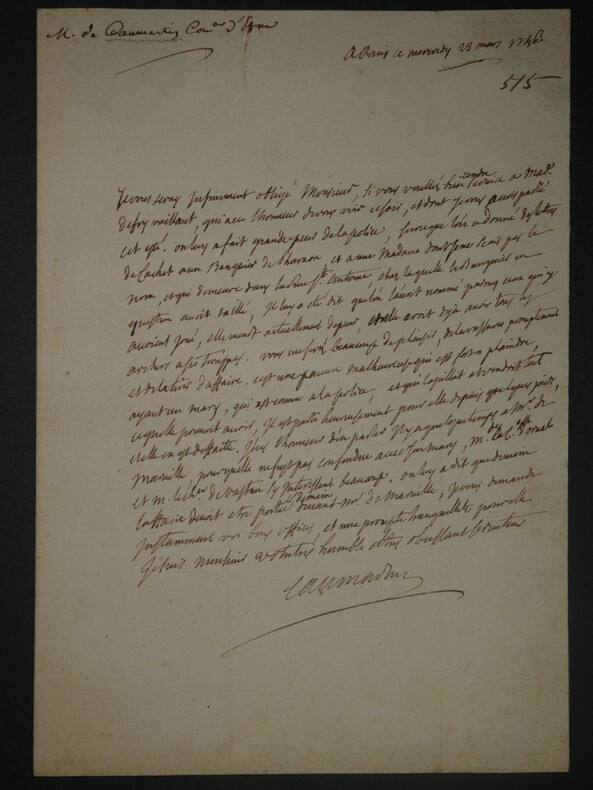 M. de Caumartin Con.er d'Etat
A Paris ce mercredy 23 mars 1746
515
Je vous seray infiniment obligé Monsieur, si vous voulliés bien rendre service a Mad.e
de foy vaillant, qui a eu l'honneur de vous voir ce soir, et dont je vous avois parlé
cet esté. on luy a fait grande peur de la police, lorsque l'on a donné des lettres
de Cachet aux Banquiers de Pharaon, et a une Madame dont je ne scais pas le
nom, et qui demeure dans la rue S.t Antoine, chez laquelle le Banquier en
question avoit taillé, Il luy a été dit qu'on l'avoit nommé parmy ceux qui y
avoient joué, elle meurt actuellement de peur, et elle croit déjà avoir tous les
archers a ses trousses. vous me ferés beaucoup de plaisir, de la rassurer promptement
et de la tirer d'affaire. c'est une pauvre malheureuse, qui est fort a plaindre,
ayant un mary, qui est connu a la police, et qui la pilloit et vendoit tout
ce qu'elle pouvoit avoir, Il est parti heureusement pour elle depuis quelques jours,
et elle en est deffaite. J'eus l'honneur d'en parler Il y a quelque temps a M.r de
Marville, pour qu'elle ne fust pas confondue avec son mary, M.
et M. le ch.er s'y interessent beaucoup. on luy a dit que demain
l'affaire devoit etre portée devant M.r de Marville; je vous demande
instamment vos bons offices, et une prompte tranquillité pour elle
Je suis Monsieur votre très humble et très obeissant serviteur
Caumartin